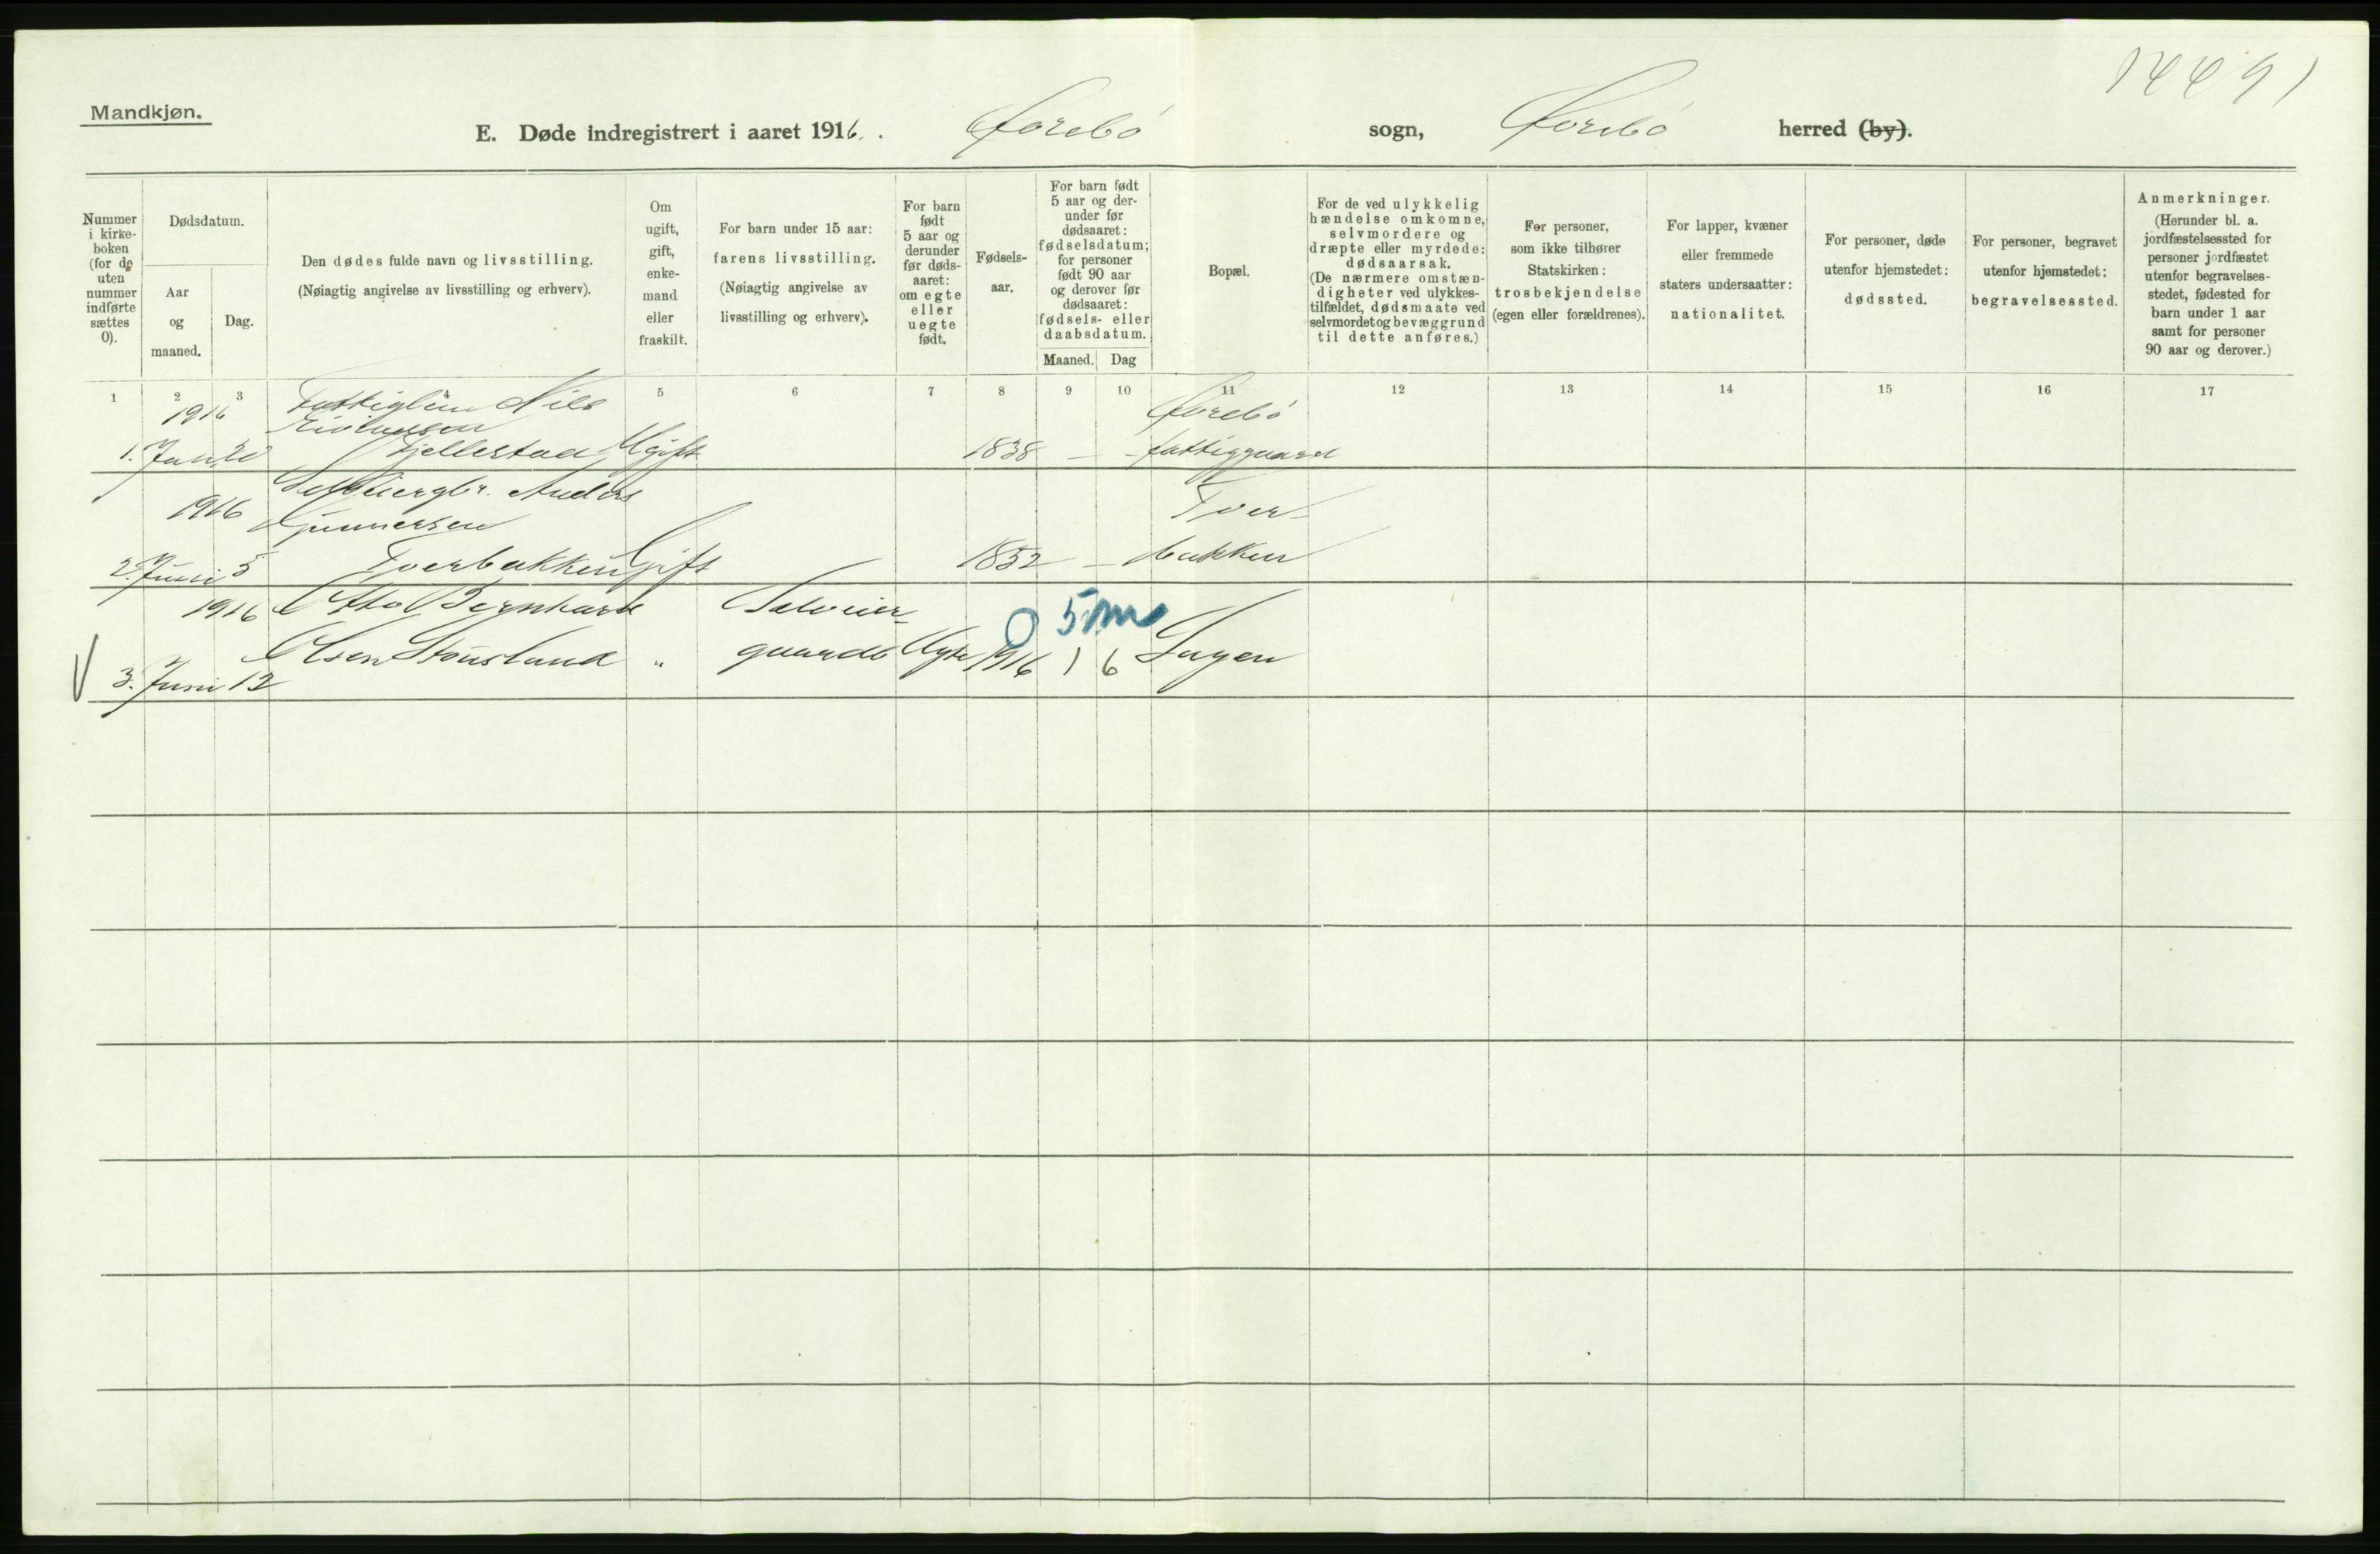 Mandkjøn.
E. Døde indregistrert i aaret 1916.Ørebø sogn, Ørebø herred (by).
Nummer i kirke-boken (for de uten nummer indførte sættes 0).
Dødsdatum.
Aar og maaned.
Dag.
Den dødes fulde navn og livsstilling.
(Nøiagtig angivelse av livsstilling og erhverv).
Om ugift, gift, enke-mand eller fraskilt.
For barn under 15 aar: farens livsstilling.
(Nøiagtig angivelse av livsstilling og erhverv).
For barn født 5 aar og derunder før døds-aaret: om egte eller uegte født.
Fødsels-aar.
For barn født 5 aar og der-under før dødsaaret: fødselsdatum; for personer født 90 aar og derover før dødsaaret: fødsels- eller daabsdatum.
Maaned. Dag
Bopæl.
For de ved ulykkelig hændelse omkomne, selvmordere og dræpte eller myrdede: dødsaarsak.
(De nærmere omstæn-digheter ved ulykkes-tilfældet, dødsmaate ved selvmordet og bevæggrund til dette anføres.)
For personer, som ikke tilhører Statskirken: trosbekjendelse (egen eller forældrenes).
For lapper, kvæner eller fremmede staters undersaatter: nationalitet.
For personer, døde utenfor hjemstedet: dødssted.
For personer, begravet utenfor hjemstedet: begravelsessted.
Anmerkninger.
(Herunder bl. a. jordfæstelsessted for personer jordfæstet utenfor begravelses-stedet, fødested for barn under 1 aar samt for personer 90 aar og derover.)
1 2 3 5 6 7 8 9 10 11 12 13 14 15 16 17
1916 Fattiglem Nils
1. Jan. 20 Ugift 1838 – – fattiggaard
1916 Anders
Gunnersen Tver-
2. Juni 5 Tverbakken Gift 1832 – bakken
1916 Olaf Bernhard
5 m
3. Juni 12 Olsen " gaardb Ugte 1916 1 6